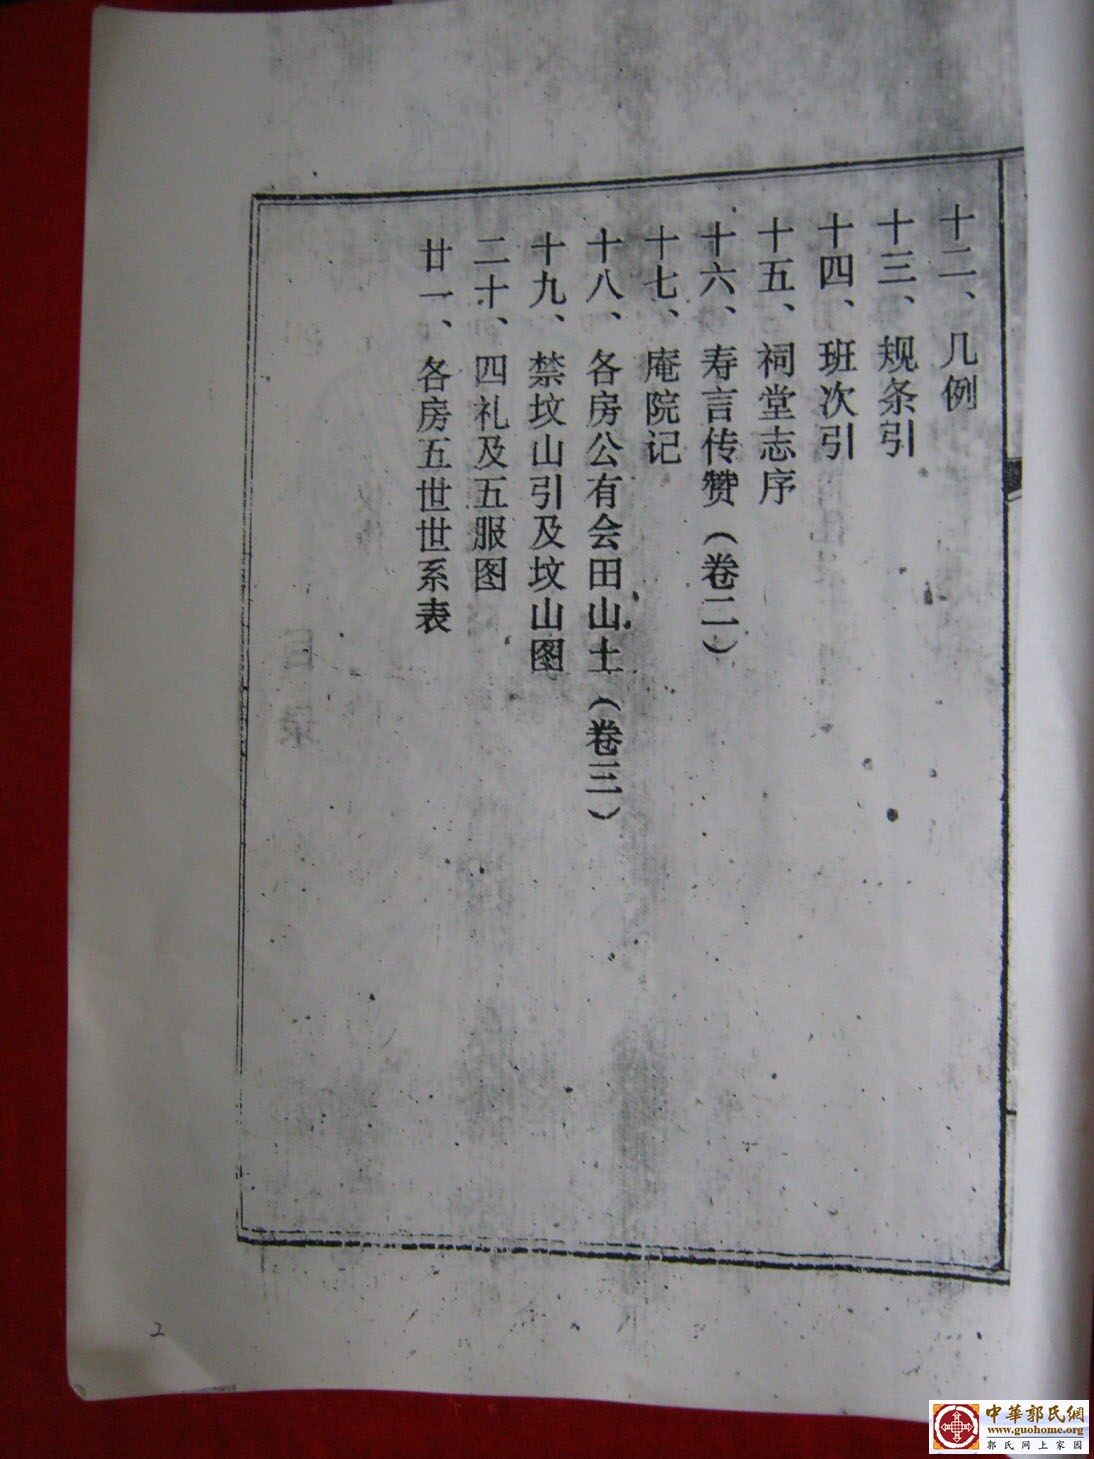 十二、几例
十三、规条引
十四、班次引
十五、祠堂志序
十六、寿言传赞（卷二）
十七、庵院记
十八、各房公有会田山土（卷三）
十九、禁坟山引及坟山图
二十、四礼及五服图
廿一、各房五世世系表
2
中華郭氏網
www.guohome.org
郭氏网上家园